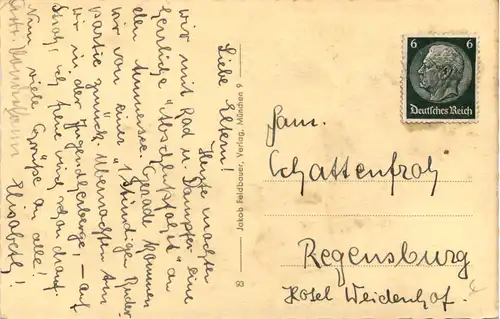 Liebe Eltern!
Heute machten
wir mit Rad u. Dampfer eine
herrliche "Abschlußfahrt" an
den Ammersee. Gerade kommen
wir von einer 1 stündigen Ruder-
partie zurück. Übernachten tun
wir in der Jugendherberge, – auf
Stroh, ich freue mich schon drauf.
Nun viele Grüße an alle!
Elisabeth!
Jakob Feldpbauer, Verlag, München 9
93
6 6
Deutsches Reich
Fam.
Schattenfroh
Regensburg
Hotel Weidenhof.